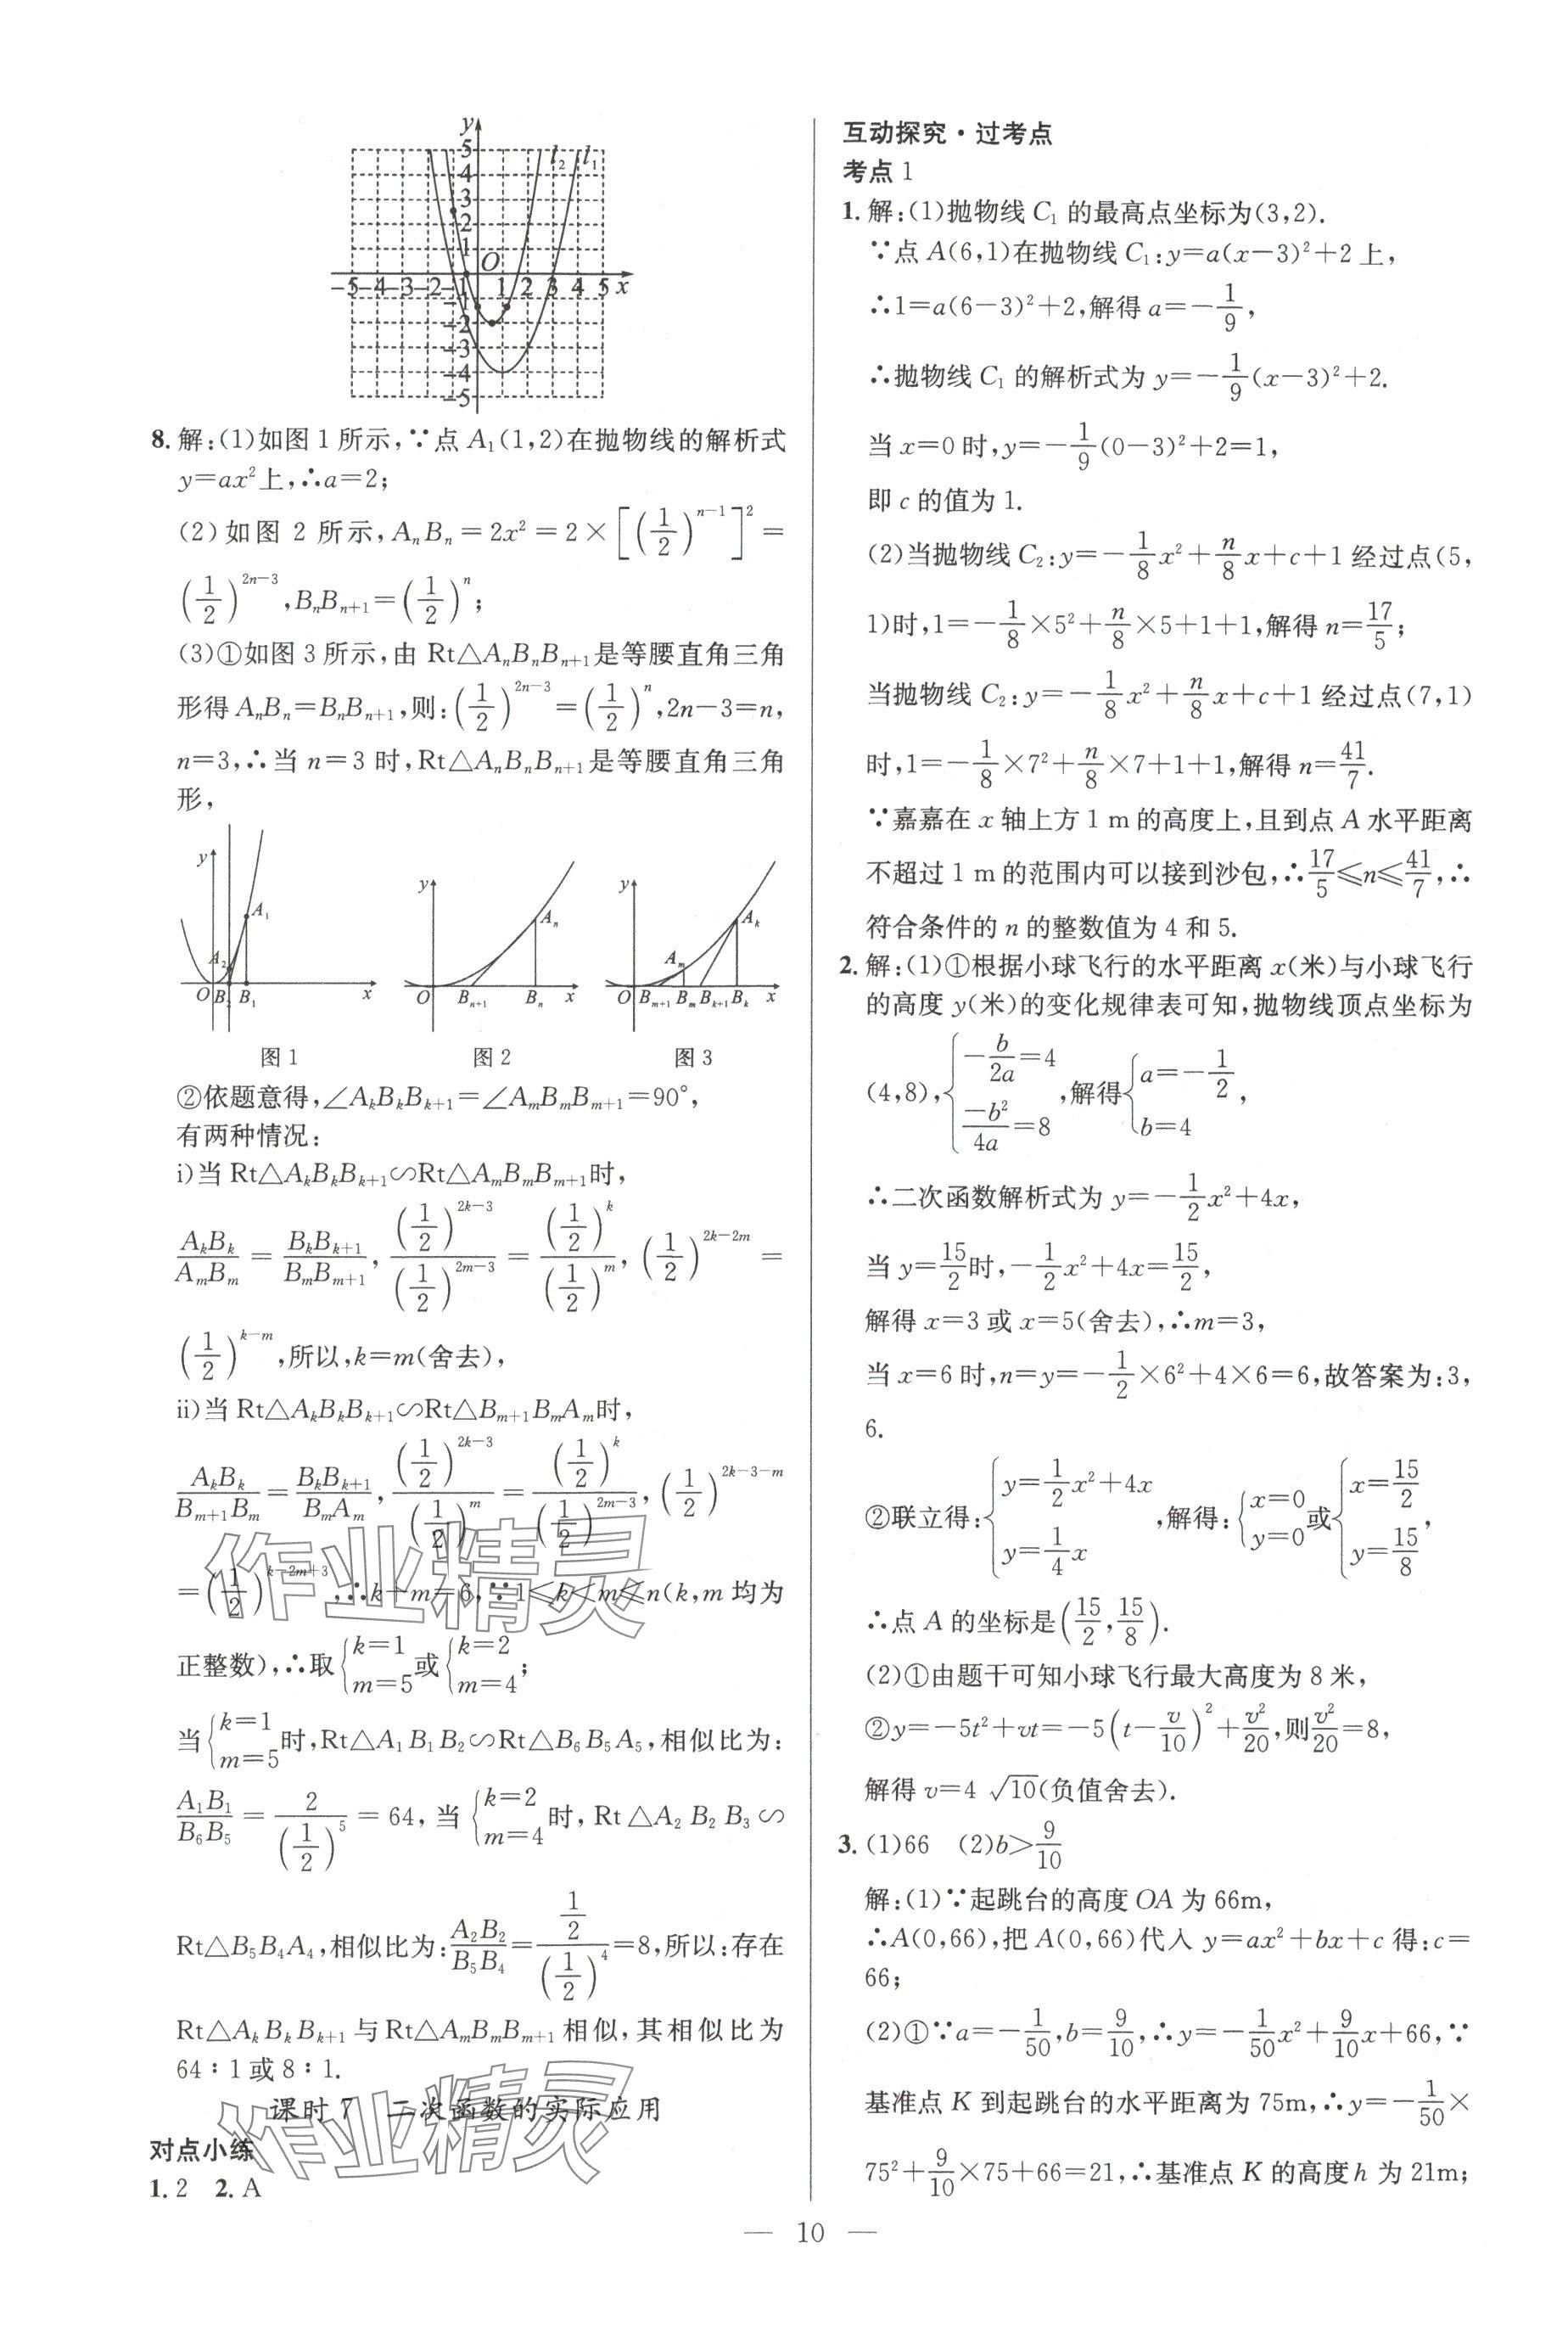 y
5
4
3
2
1
O
-5 -4 -3 -2 -1 1 2 3 4 5 x
-1
-2
-3
-4
-5
l₂ l₁
8. 解:(1)如图1所示,∵点A₁(1,2)在抛物线的解析式
y=ax²上,∴a=2;
(2)如图 2 所示, AₙBₙ=2x²=2×[(1/2)^(n-1)]²=
(1/2)^(2n-3), BₙBₙ₊₁=(1/2)^n;
(3)①如图3所示,由 Rt△AₙBₙBₙ₊₁是等腰直角三角
形得AₙBₙ=BₙBₙ₊₁,则:(1/2)^(2n-3)=(1/2)^n,2n-3=n,
n=3,∴当n=3时,Rt△AₙBₙBₙ₊₁是等腰直角三角
形,
y A₁ A₂ O B₂ B₁ x
y Aₙ O Bₙ₊₁ Bₙ x
y Aₖ Aₘ O Bₘ₊₁ Bₘ Bₖ₊₁ Bₖ x
图1 图2 图3
②依题意得,∠AₖBₖBₖ₊₁=∠AₘBₘBₘ₊₁=90°,
有两种情况:
i)当 Rt△AₖBₖBₖ₊₁∽Rt△AₘBₘBₘ₊₁时,
AₖBₖ/AₘBₘ=BₖBₖ₊₁/BₘBₘ₊₁, (1/2)^(2k-3)/(1/2)^(2m-3)=(1/2)^k/(1/2)^m, (1/2)^(2k-2m)=
(1/2)^(k-m),所以,k=m(舍去),
ii)当 Rt△AₖBₖBₖ₊₁∽Rt△Bₘ₊₁BₘAₘ时,
AₖBₖ/Bₘ₊₁Bₘ=BₖBₖ₊₁/BₘAₘ, (1/2)^(2k-3)/(1/2)^m=(1/2)^k/(1/2)^(2m-3), (1/2)^(2k-3-m)
=(1/2)^(k-2m+3),∴k+m=6,∵1≤k<m≤n(k,m均为
正整数),∴取{k=1 m=5或{k=2 m=4;
当{k=1 m=5时,Rt△A₁B₁B₂∽Rt△B₆B₅A₅,相似比为:
A₁B₁/B₆B₅=2/(1/2)^5=64,当{k=2 m=4时,Rt△A₂B₂B₃∽
Rt△B₅B₄A₄,相似比为:A₂B₂/B₅B₄=(1/2)/(1/2)^4=8,所以:存在
Rt△AₖBₖBₖ₊₁与Rt△AₘBₘBₘ₊₁相似,其相似比为
64:1或8:1.
课时7 二次函数的实际应用
对点小练
1. 2 2. A
互动探究·过考点
考点1
1. 解:(1)抛物线C₁的最高点坐标为(3,2).
∵点A(6,1)在抛物线C₁:y=a(x-3)²+2上,
∴1=a(6-3)²+2,解得a=-1/9,
∴抛物线C₁的解析式为y=-1/9(x-3)²+2.
当x=0时,y=-1/9(0-3)²+2=1,
即c的值为1.
(2)当抛物线C₂:y=-1/8x²+n/8x+c+1经过点(5,
1)时,1=-1/8×5²+n/8×5+1+1,解得n=17/5;
当抛物线C₂:y=-1/8x²+n/8x+c+1经过点(7,1)
时,1=-1/8×7²+n/8×7+1+1,解得n=41/7.
∵嘉嘉在x轴上方1 m的高度上,且到点A水平距离
不超过1 m的范围内可以接到沙包,∴17/5≤n≤41/7,∴
符合条件的n的整数值为4和5.
2. 解:(1)①根据小球飞行的水平距离x(米)与小球飞行
的高度y(米)的变化规律表可知,抛物线顶点坐标为
(4,8),{-b/2a=4 -b²/4a=8,解得{a=-1/2 b=4,
∴二次函数解析式为y=-1/2x²+4x,
当y=15/2时,-1/2x²+4x=15/2,
解得x=3或x=5(舍去),∴m=3,
当x=6时,n=y=-1/2×6²+4×6=6,故答案为:3,
6.
②联立得:{y=1/2x²+4x y=1/4x,解得:{x=0 y=0或{x=15/2 y=15/8,
∴点A的坐标是(15/2,15/8).
(2)①由题干可知小球飞行最大高度为8米,
②y=-5t²+vt=-5(t-v/10)²+v²/20,则v²/20=8,
解得v=4√10(负值舍去).
3. (1)66 (2)b>9/10
解:(1)∵起跳台的高度OA为66m,
∴A(0,66),把A(0,66)代入y=ax²+bx+c得:c=
66;
(2)①∵a=-1/50,b=9/10,∴y=-1/50x²+9/10x+66,∵
基准点K到起跳台的水平距离为75m,∴y=-1/50×
75²+9/10×75+66=21,∴基准点K的高度h为21m;
— 10 —
作业精灵
作业精灵